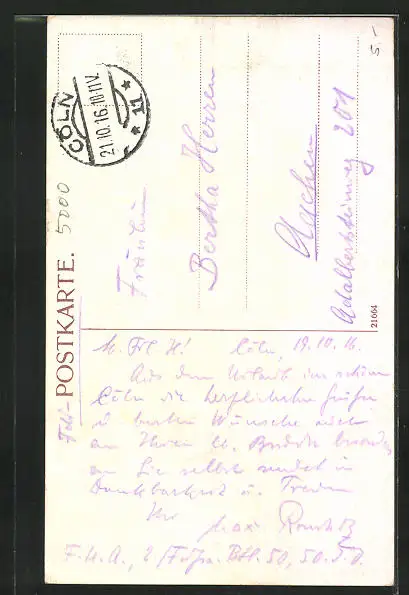 5.-
CÖLN
21.10.16.10-11V.
* 11 *
5000
POSTKARTE.
Fräulein
Bertha Herren
Aachen
Adalbertsteinweg 201
21664
Cöln, 19.10.16.
Aus dem Urlaub im schönen
Cöln die herzlichsten Grüße
u. besten Wünsche auch
an Ihren lb. Bruder
an Sie selbst sendet in
Dankbarkeit u. Treue
Ihr
Max